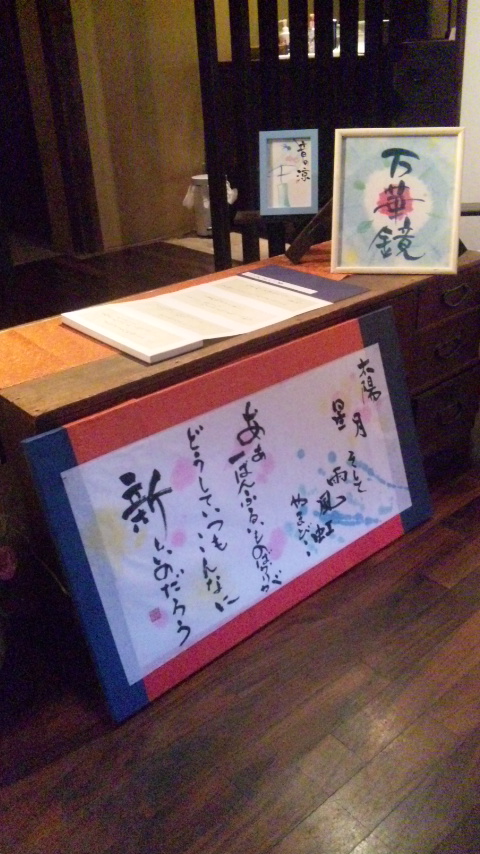 音の涼
万華鏡
太陽
月
星 そして
雨風虹
やまびこ
あゝ
一ばんふるいものばかりが
どうしていつもこんなに
新しいのだろう